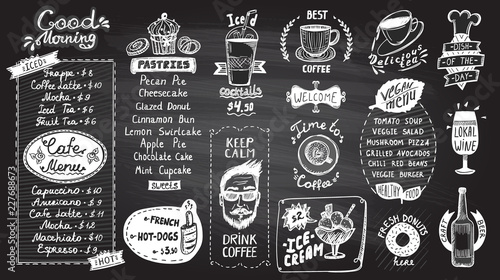 Good
Morning
ICED
Frappe - $ 8
Coffee latte - $ 10
Mocha - $ 9
Iced Tea - $ 6
Fruit Tea - $ 6
Cafe
Menu
Capuccino - $ 10
Americano - $ 9
Cafe latte - $ 11
Mocha - $ 10
Macchiato - $ 10
Espresso - $ 9
HOT
PASTRIES
Pecan Pie
Cheesecake
Glazed Donut
Cinnamon Bun
Lemon Swirlcake
Apple Pie
Chocolate Cake
Mint Cupcake
sweets
FRENCH
HOT-DOGS
$3.50
Iced
cocktails
$4.50
KEEP
CALM
DRINK
COFFEE
BEST
COFFEE
WELCOME
Time to
Coffee
$2
ICE-
CREAM
Delicious
Tea
VEGAN
menu
TOMATO SOUP
VEGGIE SALAD
MUSHROOM PIZZA
GRILLED AVOCADO
CHILI RED BEANS
VEGGIE BURGER
HEALTHY
FOOD
FRESH DONUTS
here
DISH
OF THE
DAY
LOCAL
WINE
CRAFT
BEER
227688673